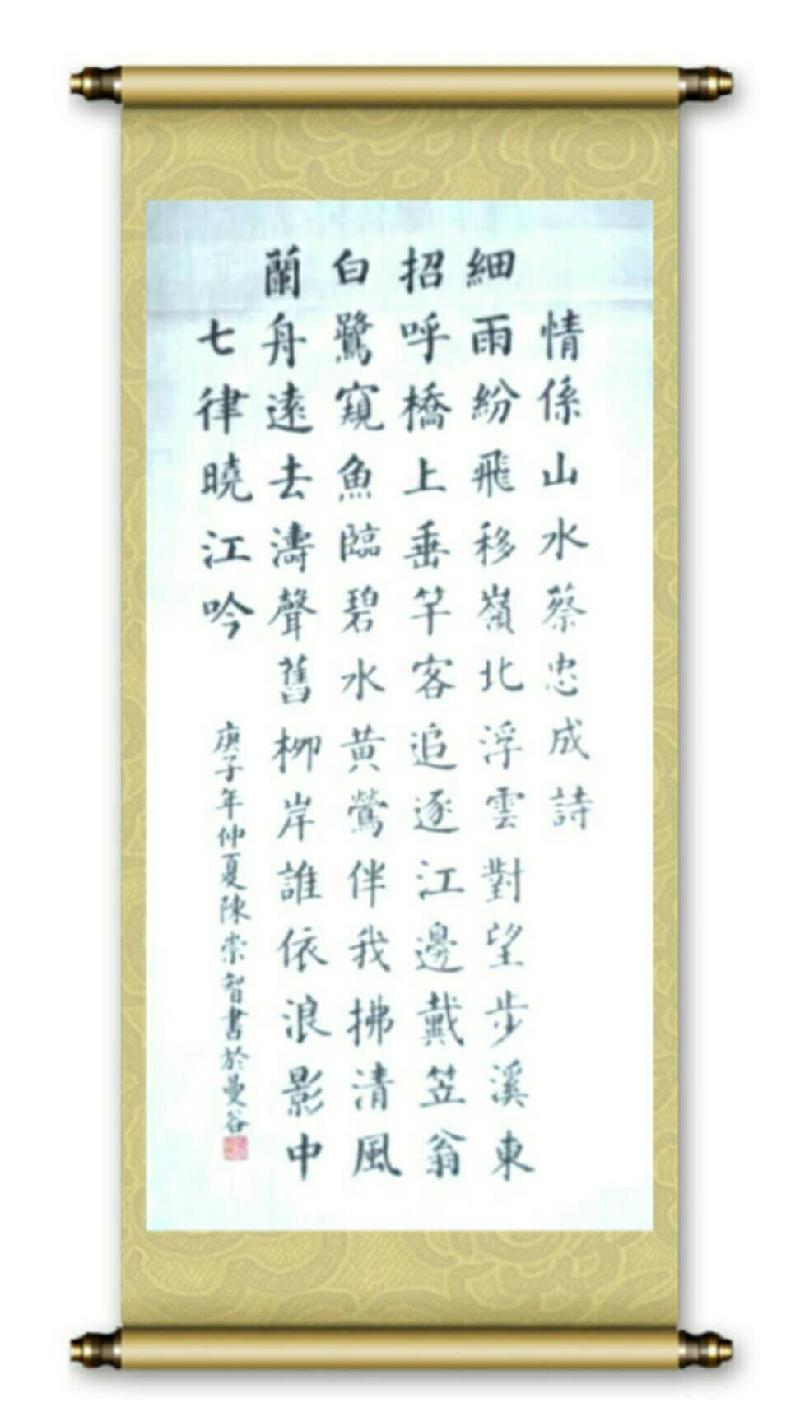 情係山水蔡忠成詩
細雨紛飛移嶺北浮雲對望步溪東
招呼橋上垂竿客追逐江邊戴笠翁
白鷺窺魚臨碧水黃鶯伴我拂清風
蘭舟遠去濤聲舊柳岸誰依浪影中
七律曉江吟
庚子年仲夏陳崇智書於曼谷